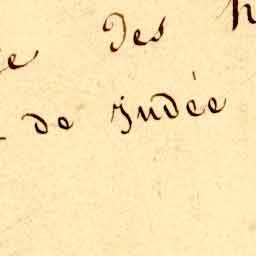 des
de Judée